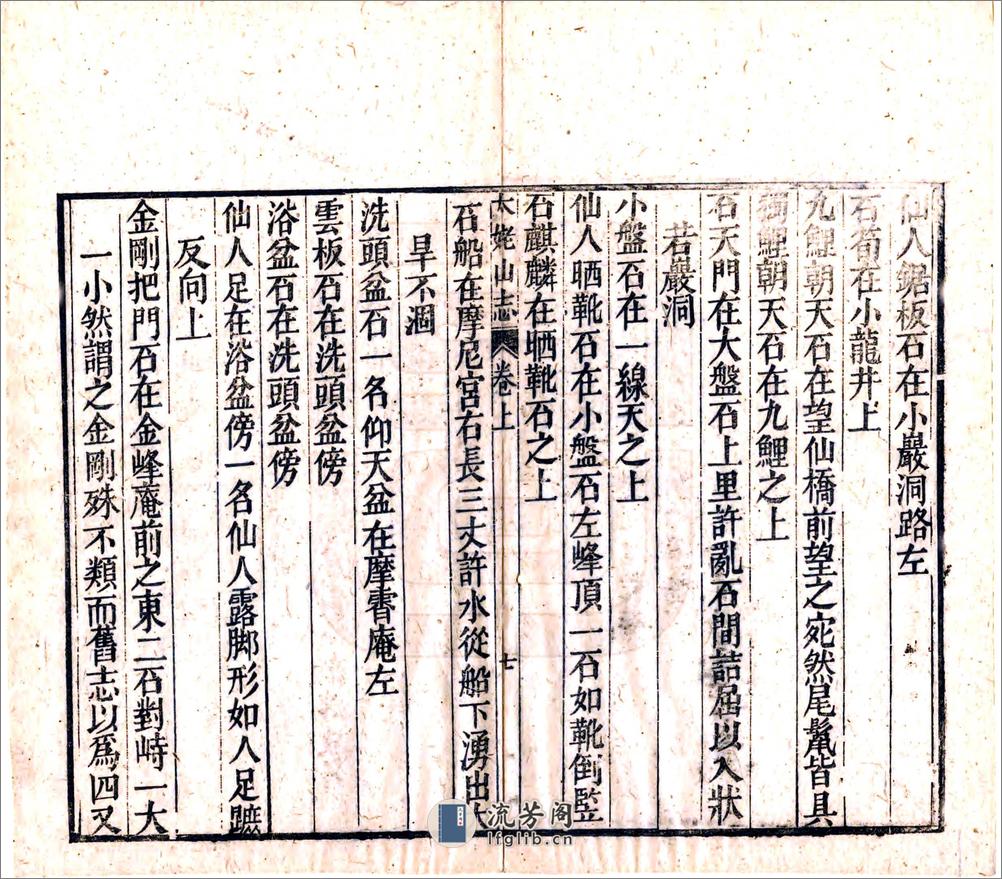 仙人鋸板石在小巖洞路左
石筍在小龍井上
九鯉朝天石在望仙橋前望之宛然尾鬣皆具
獨鯉朝天石在九鯉之上
石天門在大盤石上里許亂石間詰屈以入狀
若巖洞
小盤石在一線天之上
仙人晒靴石在小盤石左峰頂一石如靴倒豎
石麒麟在晒靴石之上
太姥山志 卷上 七
石船在摩尼宮右長三丈許水從船下湧出大
旱不涸
洗頭盆石一名仰天盆在摩霄庵左
雲板石在洗頭盆傍
浴盆石在洗頭盆傍
仙人足在浴盆傍一名仙人露脚形如人足蹠
反向上
金剛把門石在金峰庵前之東二石對峙一大
一小然謂之金剛殊不類而舊志以爲四又
流芳阁
lfglib.cn